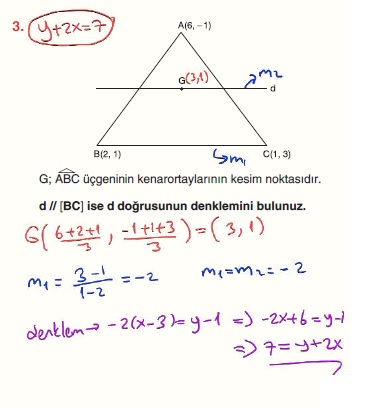 3. y+2x=7
A(6, –1)
G(3,1)
m₂
d
B(2, 1)
m₁
C(1, 3)
G; ABC üçgeninin kenarortaylarının kesim noktasıdır.
d // [BC] ise d doğrusunun denklemini bulunuz.
G(6+2+1/3, -1+1+3/3) = (3, 1)
m₁ = 3-1/1-2 = -2 m₁=m₂=-2
denklem → -2(x-3)=y-1 => -2x+6=y-1
=> 7=y+2x